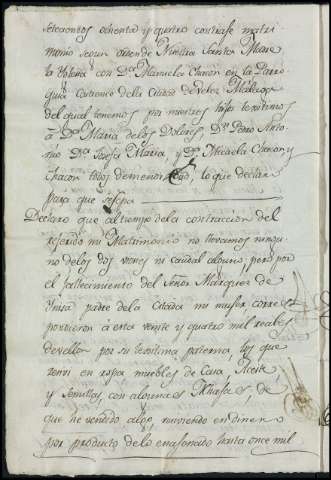 setecientos ochenta y quatro contraje matri-
monio segun orden de Nuestra Santa Madre
la Yglesia con Dª Manuela Chacon en la Parro-
quia Castrense de la Ciudad de Velez Malaga
del qual tenemos por nuestros hijos lexitimos
a Dª Maria de los Dolores, Dn Pedro Anto-
nio Dª Josefa Maria, y Dª Micaela Chacon y
Chacon todos de menor edad, lo que declaro
para que conste
Declaro que al tiempo de la contraccion del
referido mi Matrimonio no llevamos ningu-
no de los dos vienes ni caudal alguno, pero por
el fallecimiento del Señor Marques de
padre de la citada mi muger corres-
pondieron à esta veinte y quatro mil reales
de vellon por su lexitima paterna, los que
reciví en ropa muebles de Casa, Aceite
y Semillas, con algunas Alhajas, de
que he vendido algo, reuniendo en dinero
por producto de lo enagenado hasta once mil